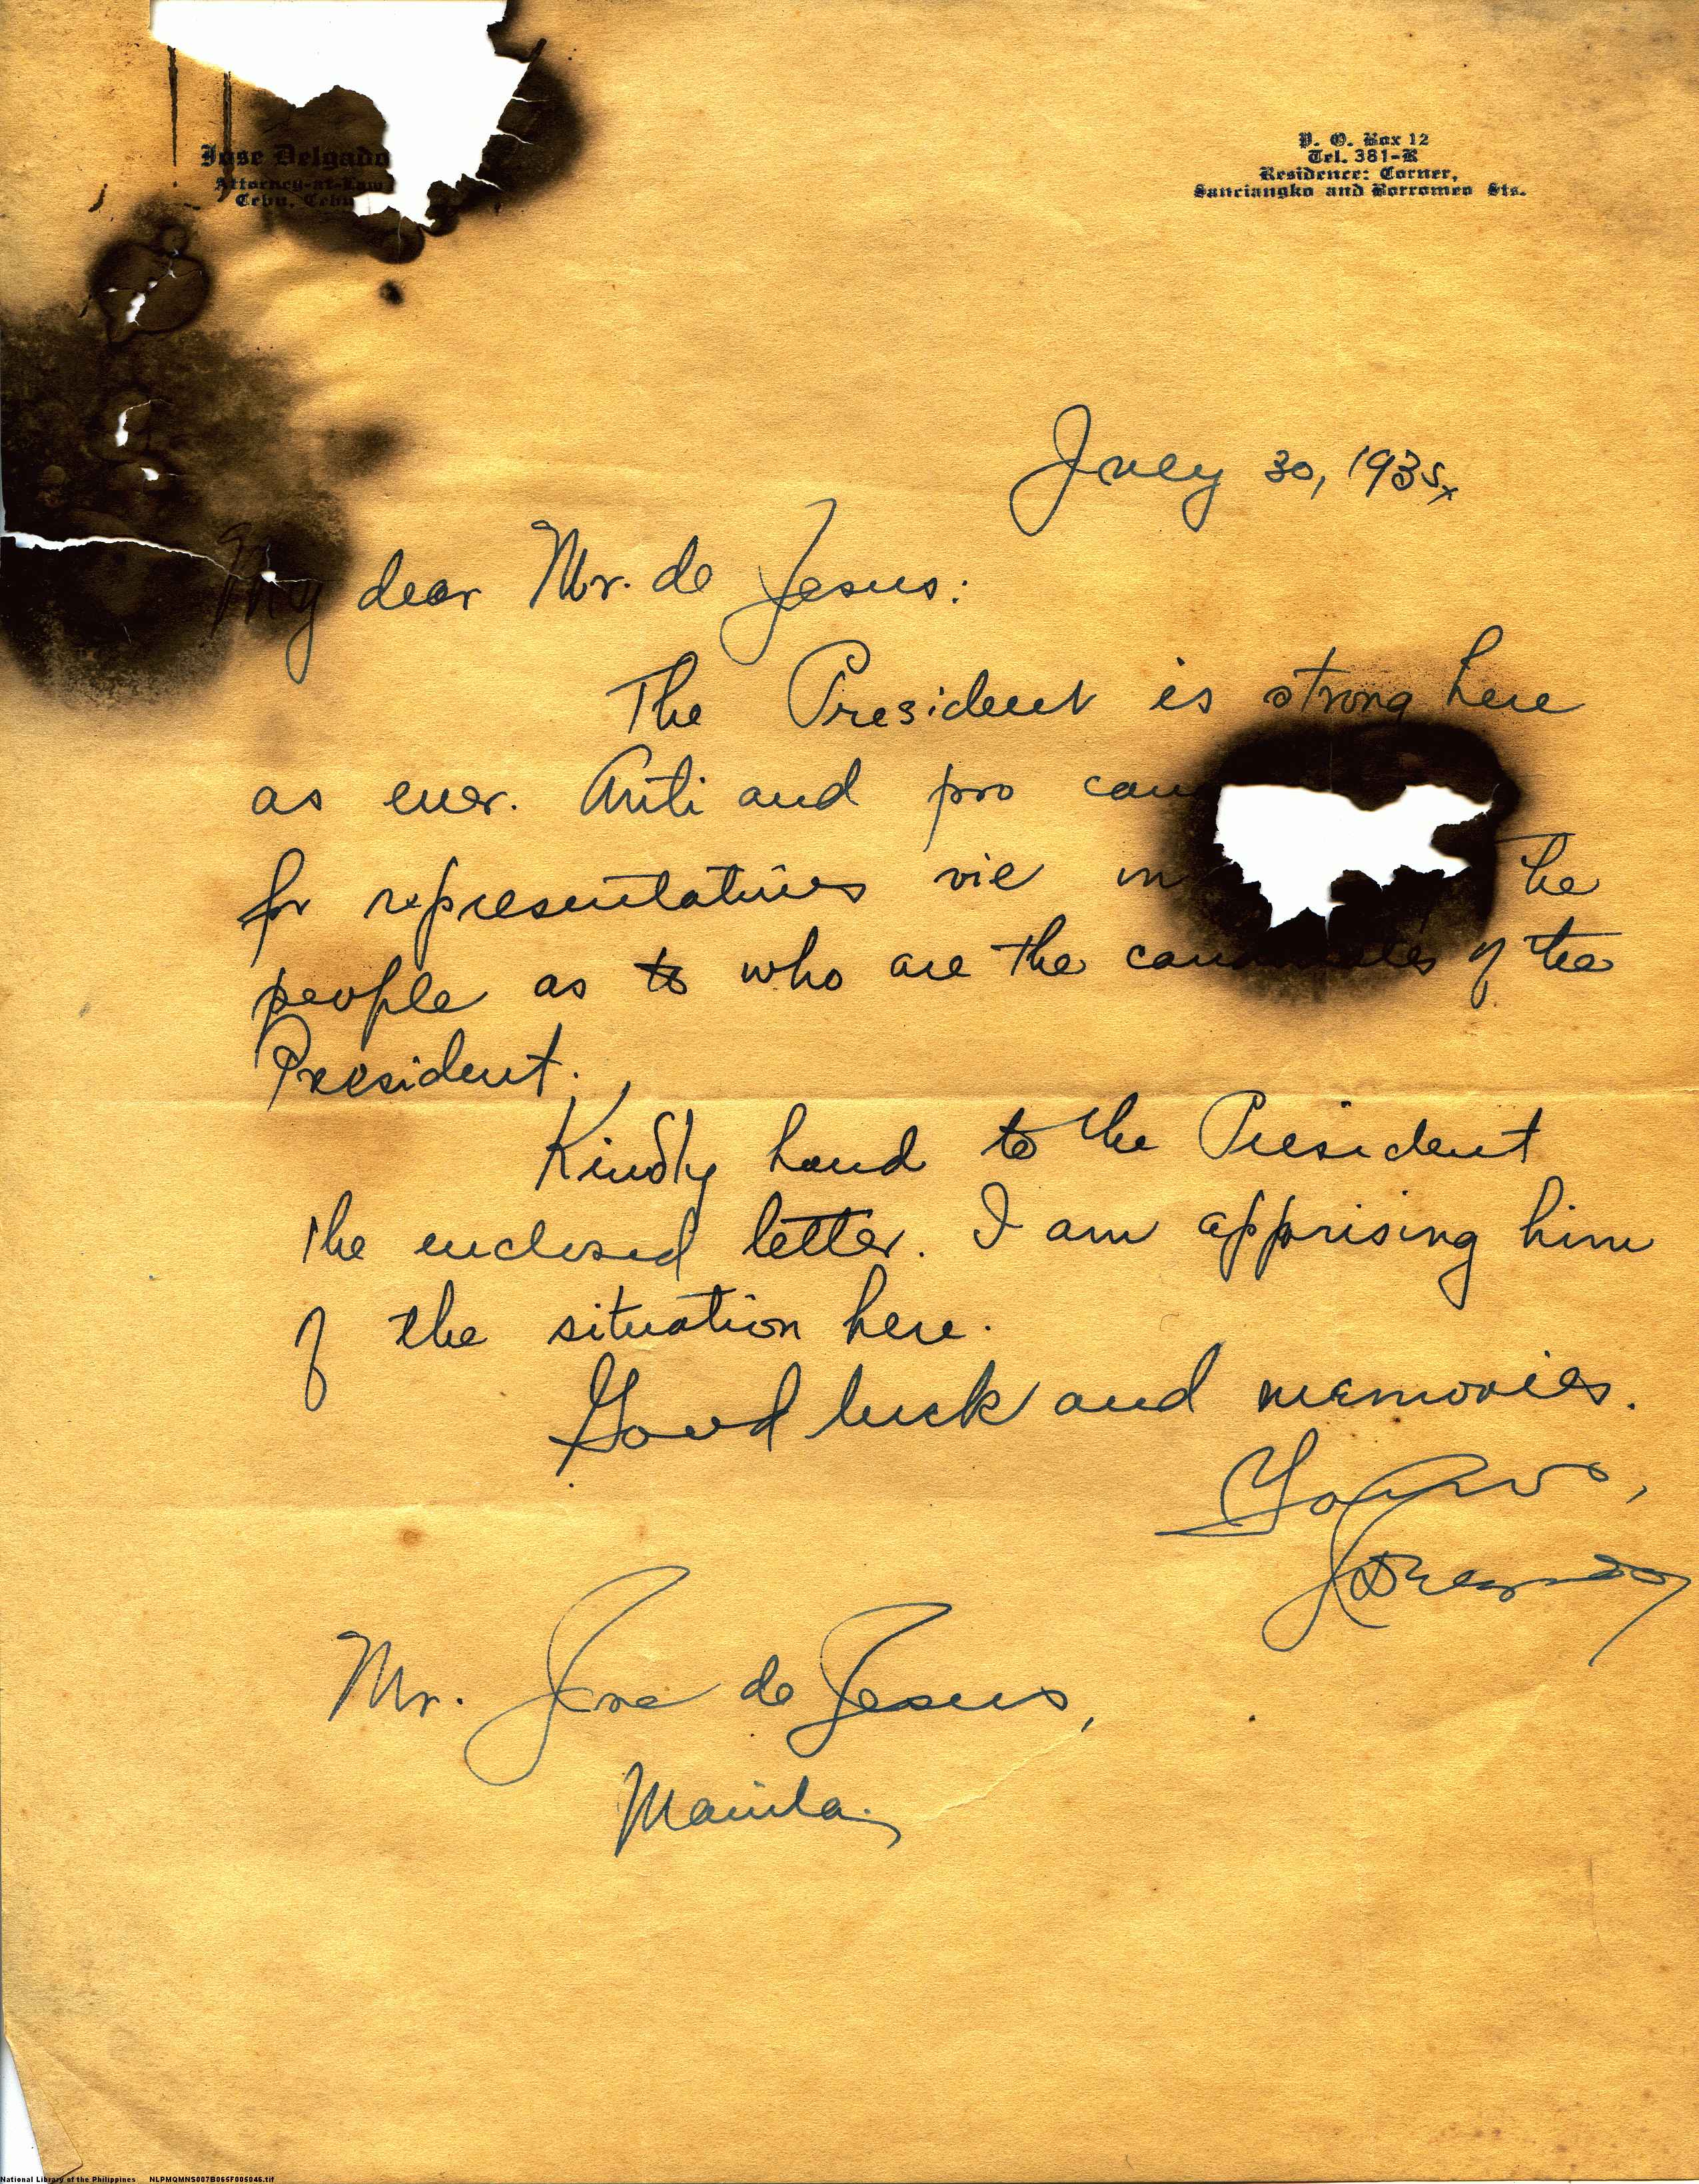 Jose Delgado
Attorney-at-Law
Cebu, Cebu
P. O. Box 12
Tel. 381-R
Residence: Corner,
Sanciangko and Borromeo Sts.
July 30, 1935
My dear Mr. de Jesus:
The President is strong here
as ever. Anti and pro
for representatives vie the
people as to who are the candidates of the
President.
Kindly hand to the President
the enclosed letter. I am apprising him
of the situation here.
Good luck and memories.
Yours,
Mr. Jose de Jesus,
Manila.
National Library of the Philippines NLPMQMNS007B065F006046.tif